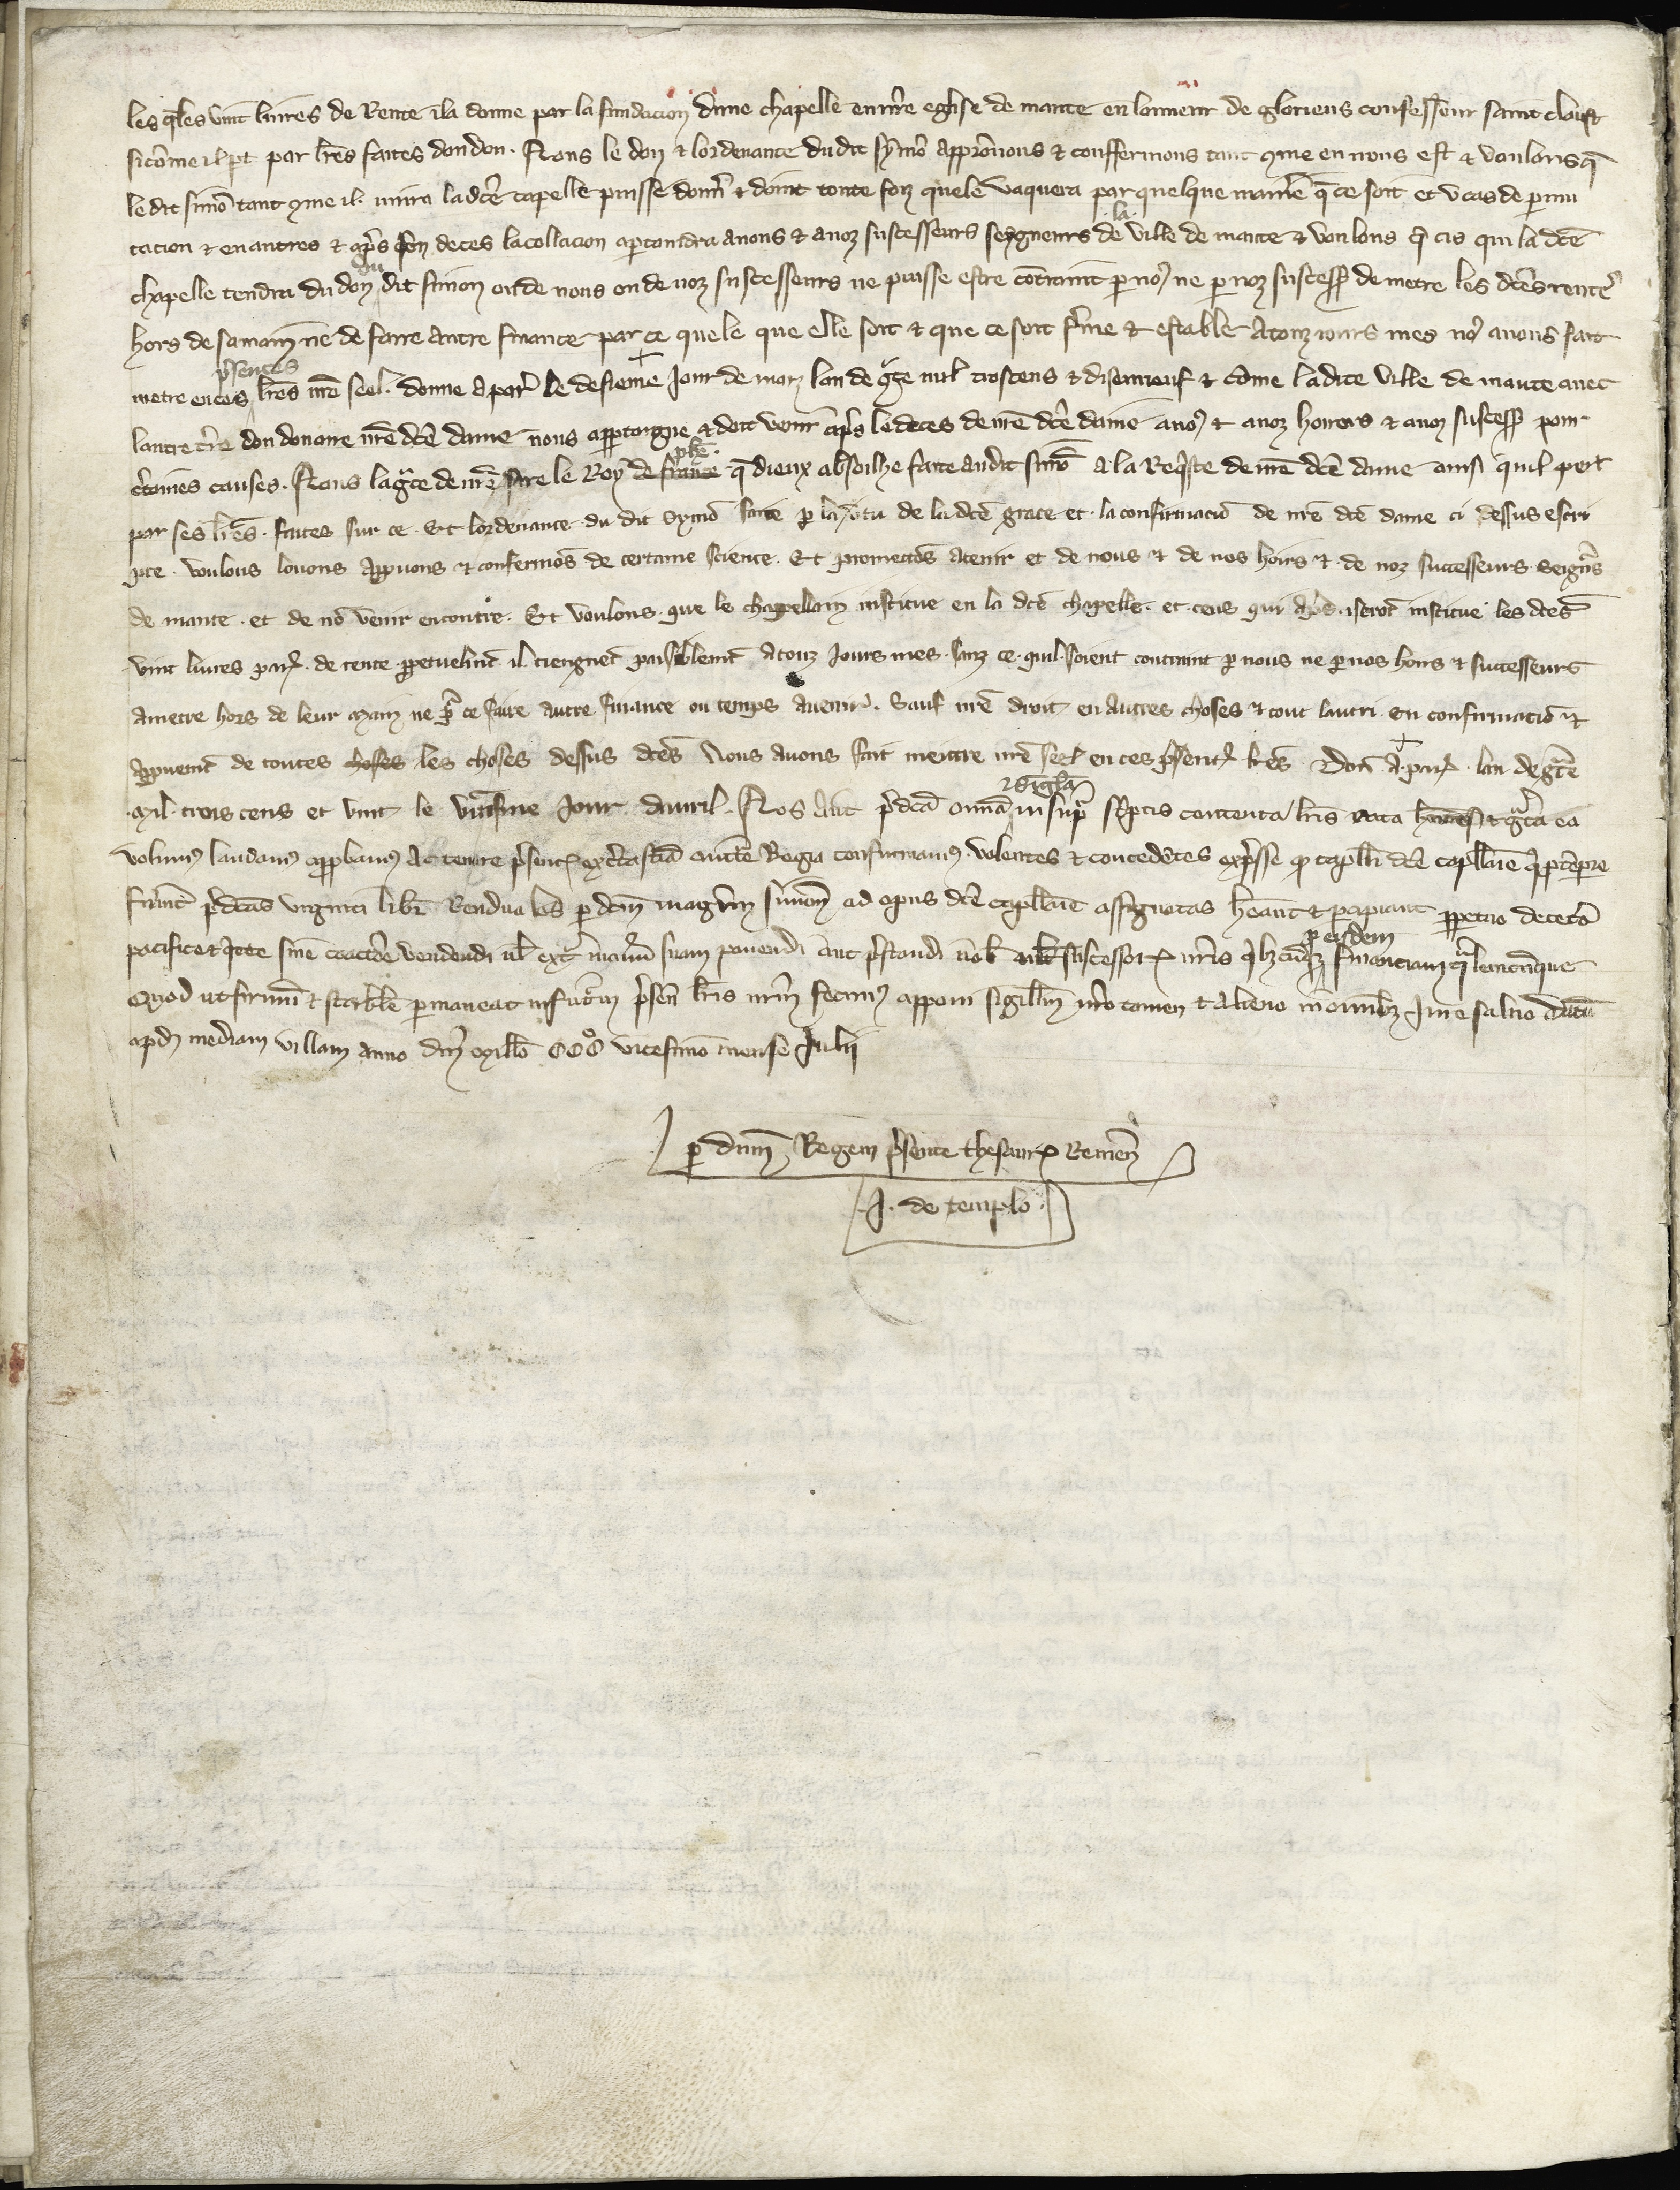 les qles vint livres de Rente il a donne par la fundacion dune chapelle en nrre eglise de mante en lonneur de glorieus confesseur saint cloust
sicome il pt par lres faites dou don. Nous le don & lordenance du dit symo approuvons & conffermons tant 9me en nous est & voulons q
le dit simo tant 9me il vivra la dce capelle puisse donn & doint toute foiz quele vaquera par quelque maniere q ce soit et u cas de permu
tacion & en autres & aps son deces la collacion apertendra a nous & a noz suscesseurs seygneurs de la ville de mante & voulons q cis qui la dce
chapelle tendra du don du dit simon ou de nous ou de noz suscesseurs ne puisse estre cotraint p no9 ne p noz suscess de metre les dces rentes
hors de sa main ne de faire autre finance par ce quele que elle soit & que ce soit ferme & estable a touz iours mes no9 avons fait
metre en ces psentes lres nre seel. donne a par le desieme jour de marz lan de gce mil troscens & disenneuf & come la dite ville de mante avec
lautre tre dou douaire nre dce dame nous appartiegne & doit venir aps le deces de nre dce dame a no9 & a noz hoirs & a noz suscess pour
ctaines causes. Nous la gce de nre sire le Roy de france phe. q dieux absoilhe faite au dit simo a la Reqste de nre dce dame ainsi quil pert
par ses lres. faites sur ce. Et lordenance du dit Symo faite p la vtu de la dce grace et la confirmacio de nre dce dame ci dessus escri
pte. voulons louons appvons & confermos de certaine science. Et prometos a tenir et de nous & de nos hoirs & de noz successeurs seigrs
de mante. et de no venir encontre. Et voulons que le chapellain institue en la dce chapelle. et ceus qui aps. isert institue les dces
vint livres par. de rente ppetuelmt il tiengnet paisiblemt a touz jours mes sanz ce quil soient contraint p nous ne p nos hoirs & successeurs
a metre hors de leur main ne pr ce faire autre finance ou temps avenir. Sauf nre droit en autres choses & tout lautri. en confirmacio &
appvemt de toutes choses les choses dessus dces Nous avons fait mettre nre seel en ces psent lres. Don a par. lan de gce
mil trois cens et vint le vitisme jour davril. Nos aut pdca omia & sigla in supra scptis contenta lris rata hntes & gta ea
volum9 laudam9 appbam9 Ac tenore psenc ex cta scia auctte Regia confirmam9. Volentes & concedetes expsse q capllni dce capllanie q p tempre
furint pdcas viginti libr Renduales p dcm magrm simon ad opus dce capllanie assignatas heant & papiant ppetuo de cetero
pacifice & qete sine coactoe vendendi ul ext manu suam ponendi aut pstandi nob aut suscessor nris qbzcuqz p eisdem financiam qlemcuque
Quod ut firmu & stabile pmaneat in futm psen lris nrm fecim9 apponi sigillm nro tamen & alieno in omnibz jure salvo datu
apd mediam villam anno dni millo CCC° vicesimo mense julii
p dnm Regem psente thesaur Remen
J. de templo